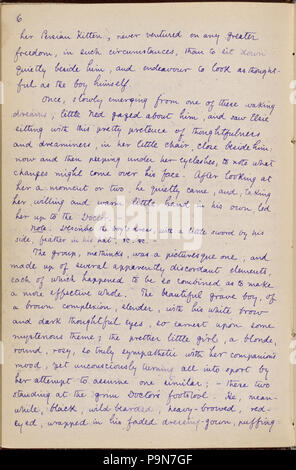 6
her Persian Kitten, never ventured on any greater
freedom, in such circumstances, than to sit down
quietly beside him, and endeavour to look as thought-
ful as the boy himself.
Once, slowly emerging from one of these waking
dreams, little Ned gazed about him, and saw Elsie
sitting with this pretty pretence of thoughtfulness
and dreaminess, in her little chair, close beside him;
now and then peeping under her eyelashes, to note what
changes might come over his face. After looking at
her a moment or two, he quietly came, and, taking
her willing and warm little hand in his own, led
her up to the Doctr.
Note. Describe the boy's dress, with a little sword by his
side, feather in his hat, &c. &c.
The group, methinks, was a picturesque one, and
made up of several apparently discordant elements,
each of which happened to be so combined as to make
a more effective whole. The beautiful grave boy, of
a brown complexion, slender, with his white brow
and dark thoughtful eyes, so earnest upon some
mysterious theme; the prettier little girl, a blonde,
round, rosy, so truly sympathetic with her companion's
mood, yet unconsciously turning all into sport by
her attempt to assume one similar; – these two
standing at the grim Doctor's footstool. He, mean-
while, black, wild bearded, heavy-browed, red-
eyed, wrapped in his faded dressing-gown, puffing
alamy
Image ID: P9N7GF
www.alamy.com